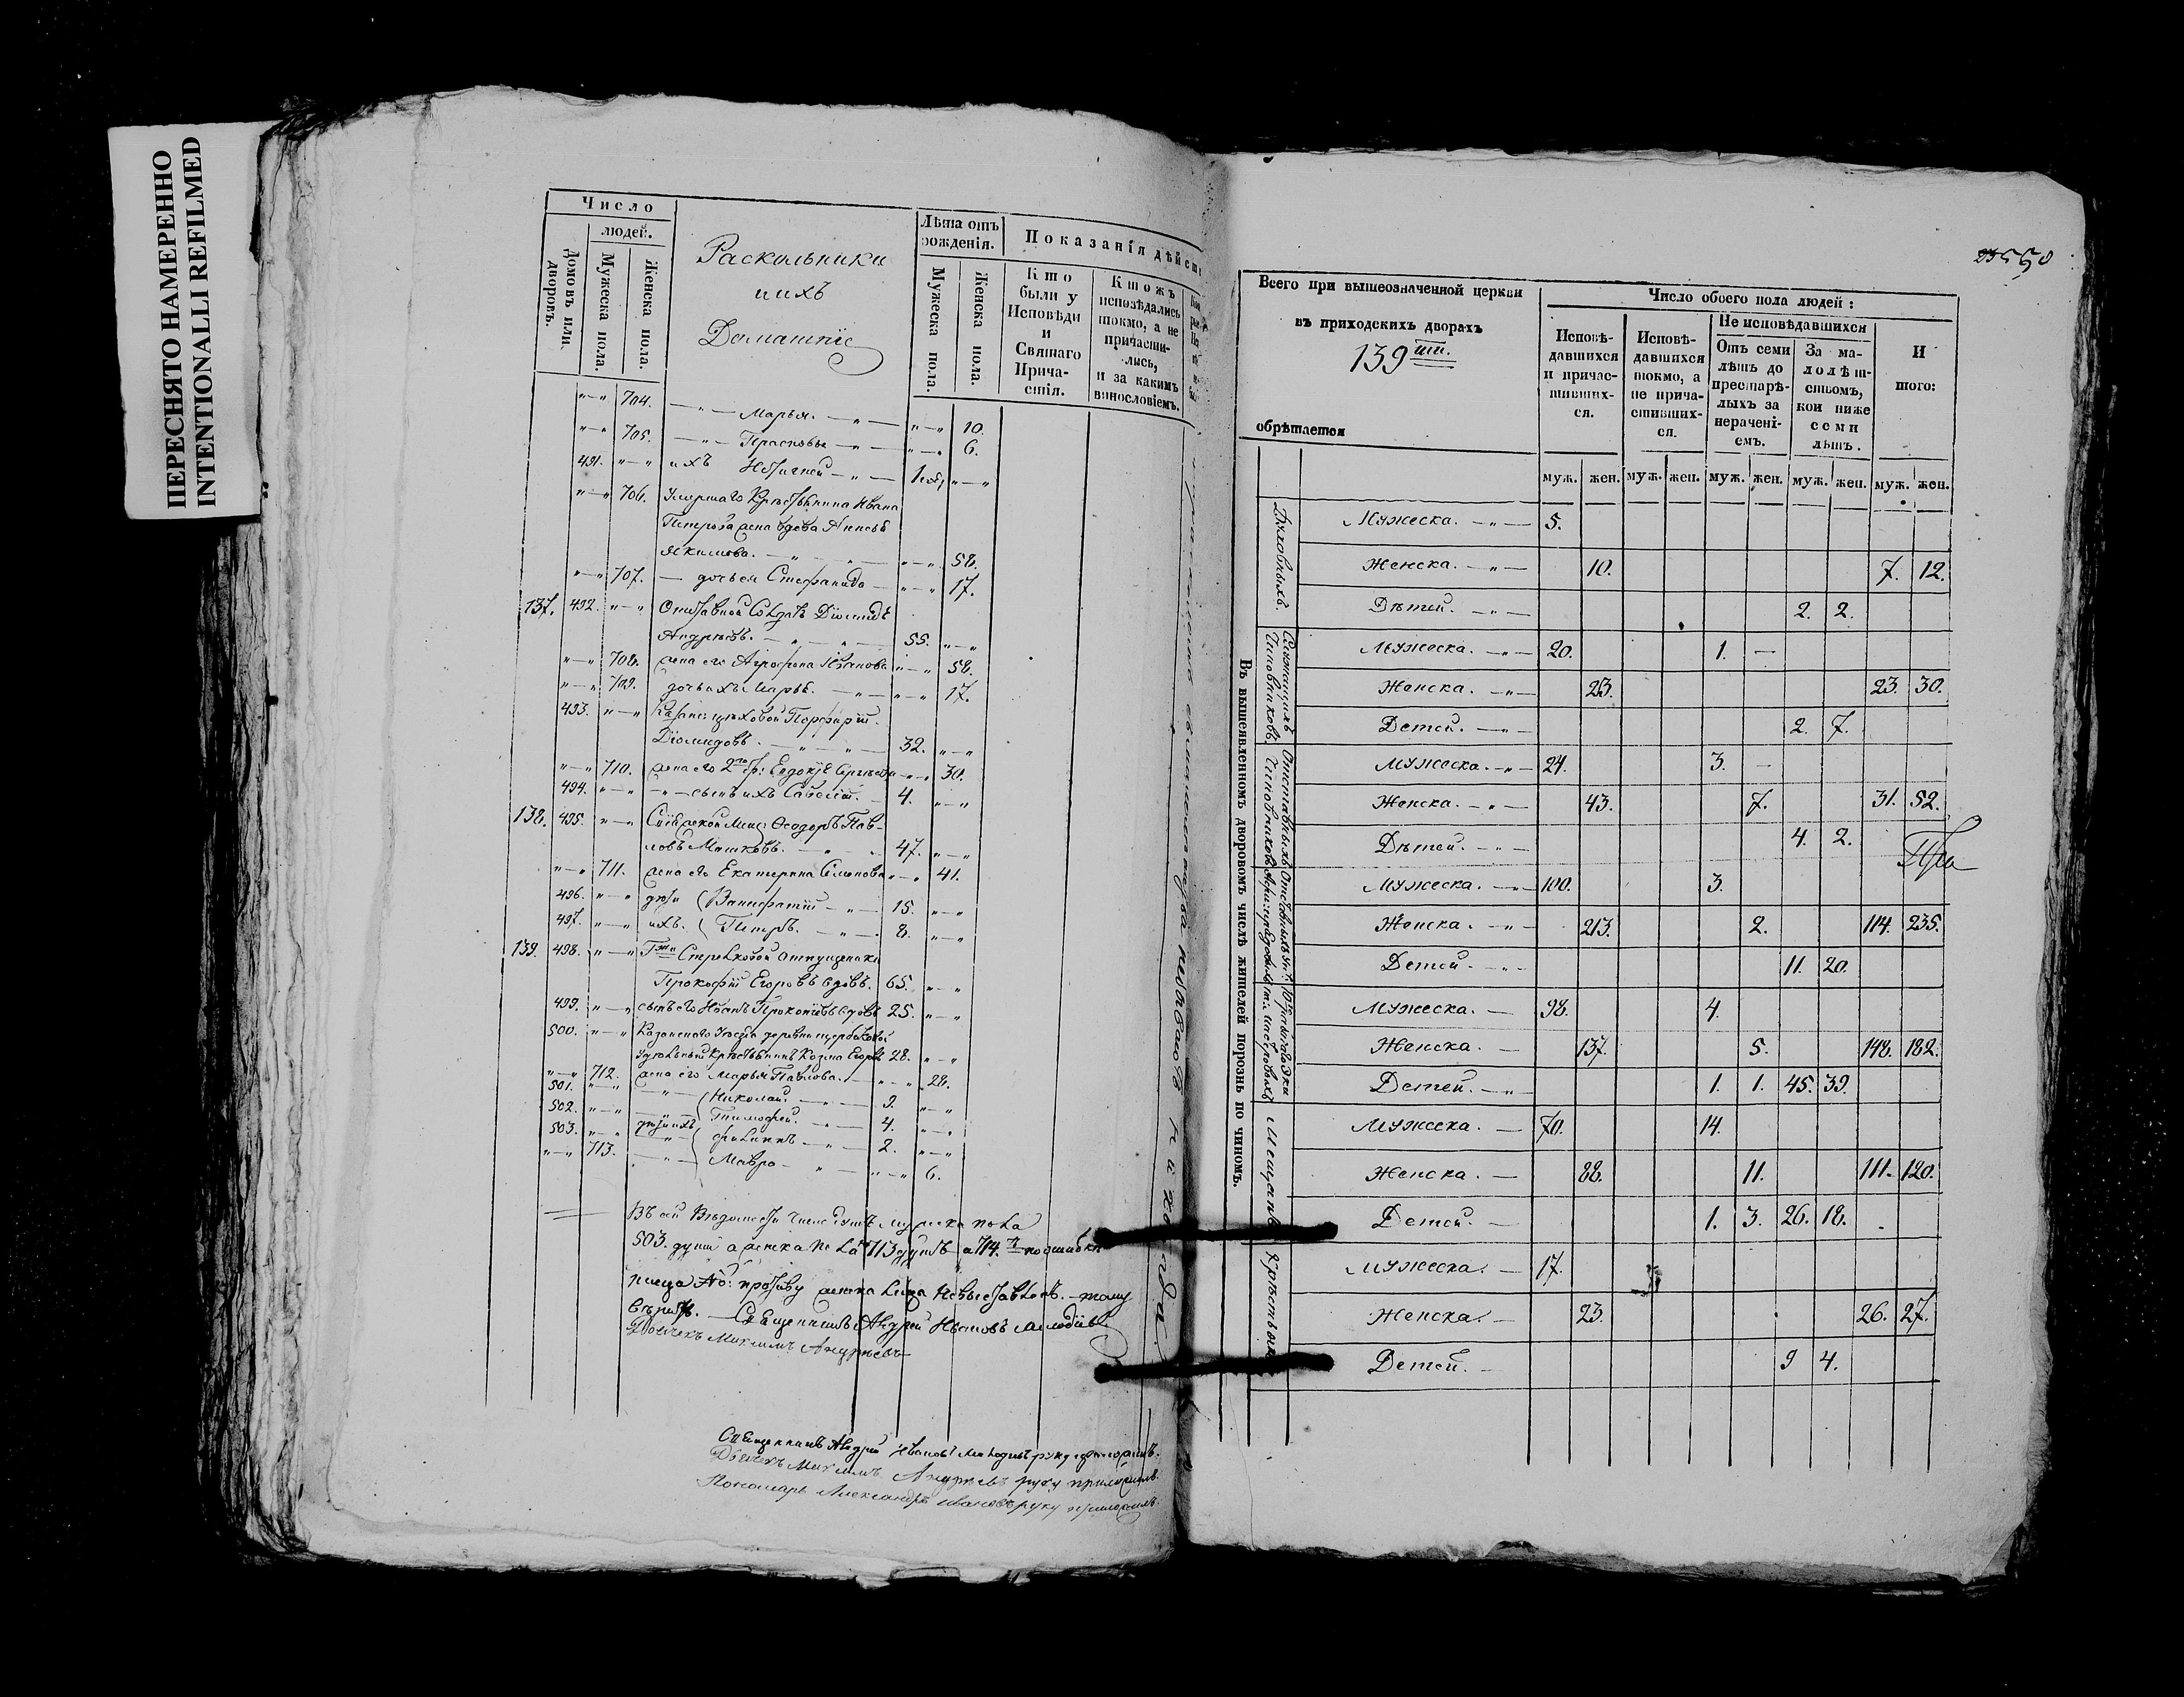 ПЕРЕСНЯТО НАМЕРЕННО
INTENTIONALLI REFILMED
Число
людей.
Домовъ или дворовъ.
Мужеска пола.
Женска пола.
Раскольники
и ихъ
Домашніе
Лѣта отъ рожденія.
Мужеска пола.
Женска пола.
Показанія дѣйст
Кто были у Исповѣди и Святаго Причастія.
Ктожъ исповѣдались токмо, а не причастились, и за какимъ винословіемъ.
704. Марья. 10.
705. Прасковья 6.
491. ихъ Евгигней 1
706. Умершаго Крестьянина Ивана
Петрова жена вдова
Якимова. 58.
707. дочь ея Стефанида 17.
137. 492. Отставной Солдатъ Діомидъ
Андреевъ. 55.
708. жена его Агрофена Иванова 58.
709. дочь ихъ Марья. 17.
493. Казанс: цеховой Порфирій
Діомидовъ. 32.
710. жена его 2го бр: Евдокія Сергеева 30.
494. сынъ ихъ Савелій. 4.
138. 495. Ѳеодоръ Пав-
ловъ Машковъ. 47.
711. жена его Екатерина Семенова 41.
496. дети Ванифатій 15.
497. ихъ. Петръ. 8.
139. 498. Гжи Стрелковой отпущеники
Прокофій Егоровъ вдовъ. 65.
499. сынъ его Иванъ Прокопіевъ вдовъ 25.
500. Казанскаго Уезда деревни
Удельный Крестьянинъ Козма Егоровъ 28.
712. жена его Марья Павлова. 28.
501. Николай. 9.
502. дети ихъ Тимофей. 4.
503. Филиппъ 2.
713. Мавра 6.
Въ сей Ведомости числа душъ мужеска пола
503. души а женска пола 713 душъ а 714. по ошибки
писца No: противу женска лица невыставленъ. тому
верить. Священникъ Андрей Ивановъ
Дьячекъ Михаилъ Андреевъ
Священникъ Андрей Ивановъ руку приложилъ.
Дьячекъ Михаилъ Андреевъ руку приложилъ.
Пономарь Александръ Ивановъ руку приложилъ.
550
Всего при вышеозначенной церкви
въ приходскихъ дворахъ
139ти.
обрѣтается
Число обоего пола людей:
Исповѣдавшихся и причастившихся.
Исповѣдавшихся токмо, а не причастившихся.
Не исповѣдавшихся
Отъ семи лѣтъ до престарѣлыхъ за нераченіемъ.
За малолѣтствомъ, кои ниже семи лѣтъ.
И того:
муж. жен. муж. жен. муж. жен. муж. жен. муж. жен.
Въ вышеявленномъ дворовомъ числѣ жителей порознь по чиномъ.
Духовныхъ.
Мужеска. 5.
Женска. 10. 7. 12.
Дѣтей. 2. 2.
Служащихъ Чиновниковъ.
Мужеска. 20. 1.
Женска. 23. 23. 30.
Детей. 2. 7.
Отставныхъ Чиновниковъ
Мужеска. 24. 3.
Женска. 43. 7. 31. 52.
Дѣтей. 4. 2.
Мужеска. 100. 3.
Женска. 213. 2. 114. 235.
Детей. 11. 20.
Мужеска. 98. 4.
Женска. 137. 5. 148. 182.
Детей. 1. 1. 45. 39.
Мещанъ
Мужеска. 70. 14.
Женска. 88. 11. 111. 120.
Детей. 1. 3. 26. 18.
Крестьянъ
Мужеска. 17.
Женска. 23. 26. 27.
Детей. 9 4.